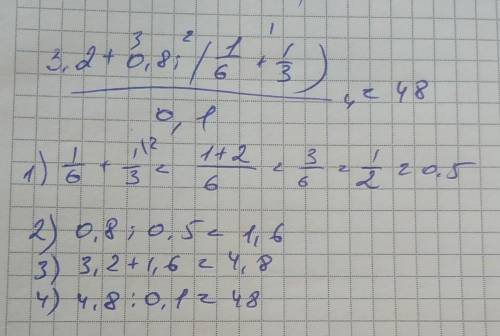 3,2 + 0,8 : (1/6 + 1/3)
3 2 1
0,1
= 48
1) 1/6 + 1/3 \2 = 1+2/6 = 3/6 = 1/2 = 0.5
2) 0,8 : 0,5 = 1,6
3) 3,2 + 1,6 = 4,8
4) 4,8 : 0,1 = 48